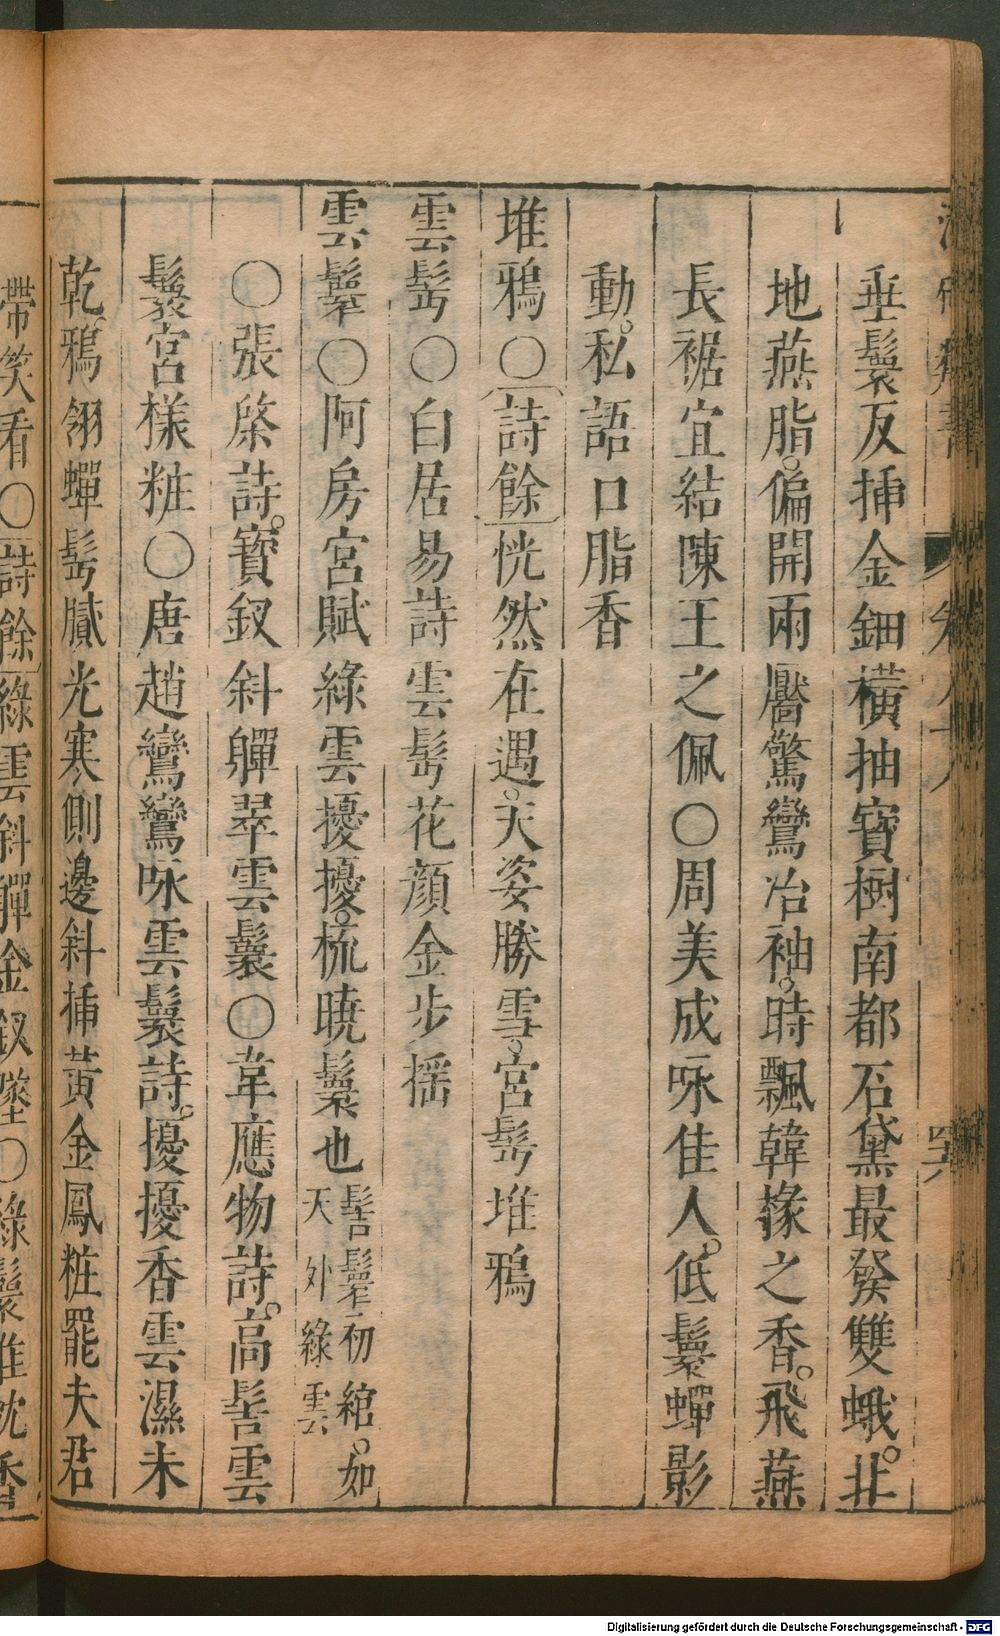 垂鬟反挿金鈿橫抽寶樹南都石黛最發雙蛾北
地燕脂偏開兩靨驚鸞冶袖時飄韓掾之香飛燕
長裾宜結陳王之佩〇周美成咏佳人低鬟蟬影
動私語口脂香
堆鴉〇詩餘恍然在遇天姿勝雪宮髻堆鴉
雲髻〇白居易詩雲髻花顔金步揺
雲鬟〇阿房宮賦綠雲擾擾梳曉鬟也髻鬟初綰如天外綠雲
〇張祭詩寶釵斜軃翠雲鬟〇韋應物詩高髻雲
鬟宮樣粧〇唐趙鸞鸞咏雲鬟詩擾擾香雲濕未
乾鴉翎蟬髩膩光寒側邊斜挿黃金鳳粧罷夫君
帶笑看〇詩餘綠雲斜軃金釵墜〇綠鬟堆枕香
Digitalisierung gefördert durch die Deutsche Forschungsgemeinschaft - DFG